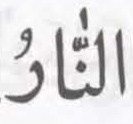 النَّارُ